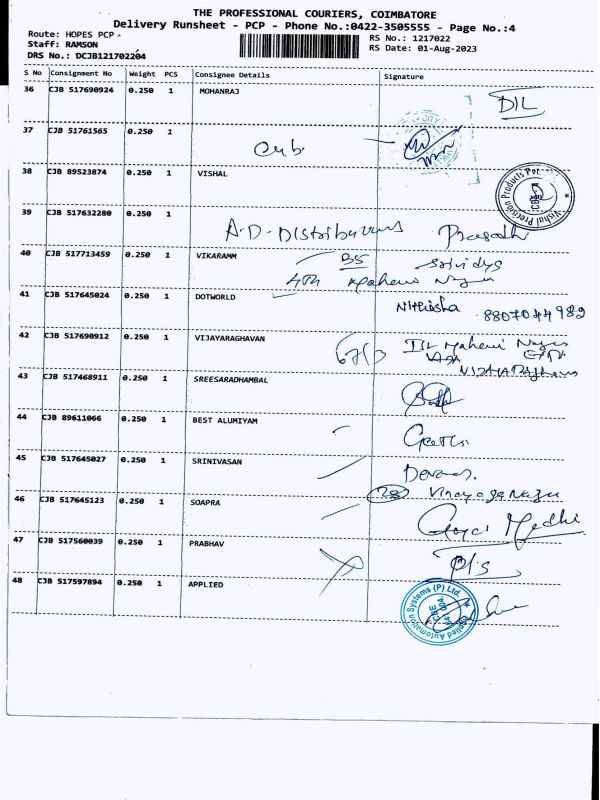 THE PROFESSIONAL COURIERS, COIMBATORE
Delivery Runsheet - PCP - Phone No.:0422-3505555 - Page No.:4
Route: HOPES PCP - RS No.: 1217022
Staff: RAMSON RS Date: 01-Aug-2023
DRS No.: DCJB121702204
S No Consignment No Weight PCS Consignee Details Signature
36 CJB 517690924 0.250 1 MOHANRAJ
DIL
37 CJB 51761565 0.250 1
38 CJB 89523874 0.250 1 VISHAL
Vishal Precision Products Pvt.
39 CJB 517632280 0.250 1
A-D-Distributors Prasadh
40 CJB 517713459 0.250 1 VIKARAMM
41 CJB 517645024 0.250 1 DOTWORLD
8807044982
42 CJB 517690912 0.250 1 VIJAYARAGHAVAN
43 CJB 517468911 0.250 1 SREESARADHAMBAL
44 CJB 89611066 0.250 1 BEST ALUMIYAM
45 CJB 517645027 0.250 1 SRINIVASAN
46 CJB 517645123 0.250 1 SOAPRA
47 CJB 517560039 0.250 1 PRABHAV
48 CJB 517597894 0.250 1 APPLIED
Applied Automation Systems (P) Ltd.